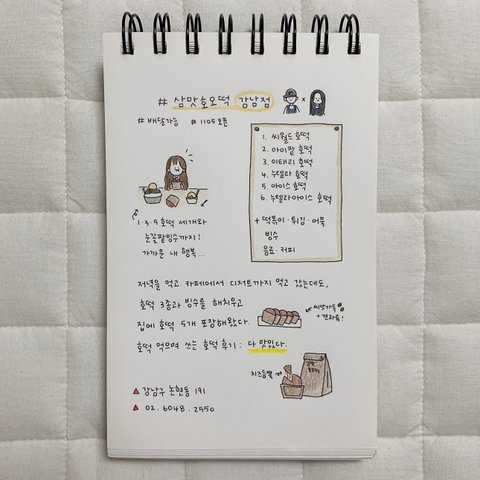 # 삼맛호오떡 강남점
x
# 배달가능 # 1105오픈
1. 씨월드 호떡
2. 아이팥 호떡
3. 이태리 호떡
4. 누텔라 호떡
5. 아이스 호떡
6. 누텔라아이스 호떡
+ 떡볶이·튀김·어묵
빙수
음료·커피
1·3·5 호떡 세개와
눈꽃팥빙수까지!
가까운 내 행복...
저녁을 먹고 카페에서 디저트까지 먹고 갔는데도,
호떡 3종과 빙수를 해치우고
집에 호떡 5개 포장해왔다.
씨앗가득
+ 견과류!
호떡 먹으며 쓰는 호떡 후기 : 다 맛있다.
치즈듬뿍
▲ 강남구 논현동 191
▲ 02.6048.2550